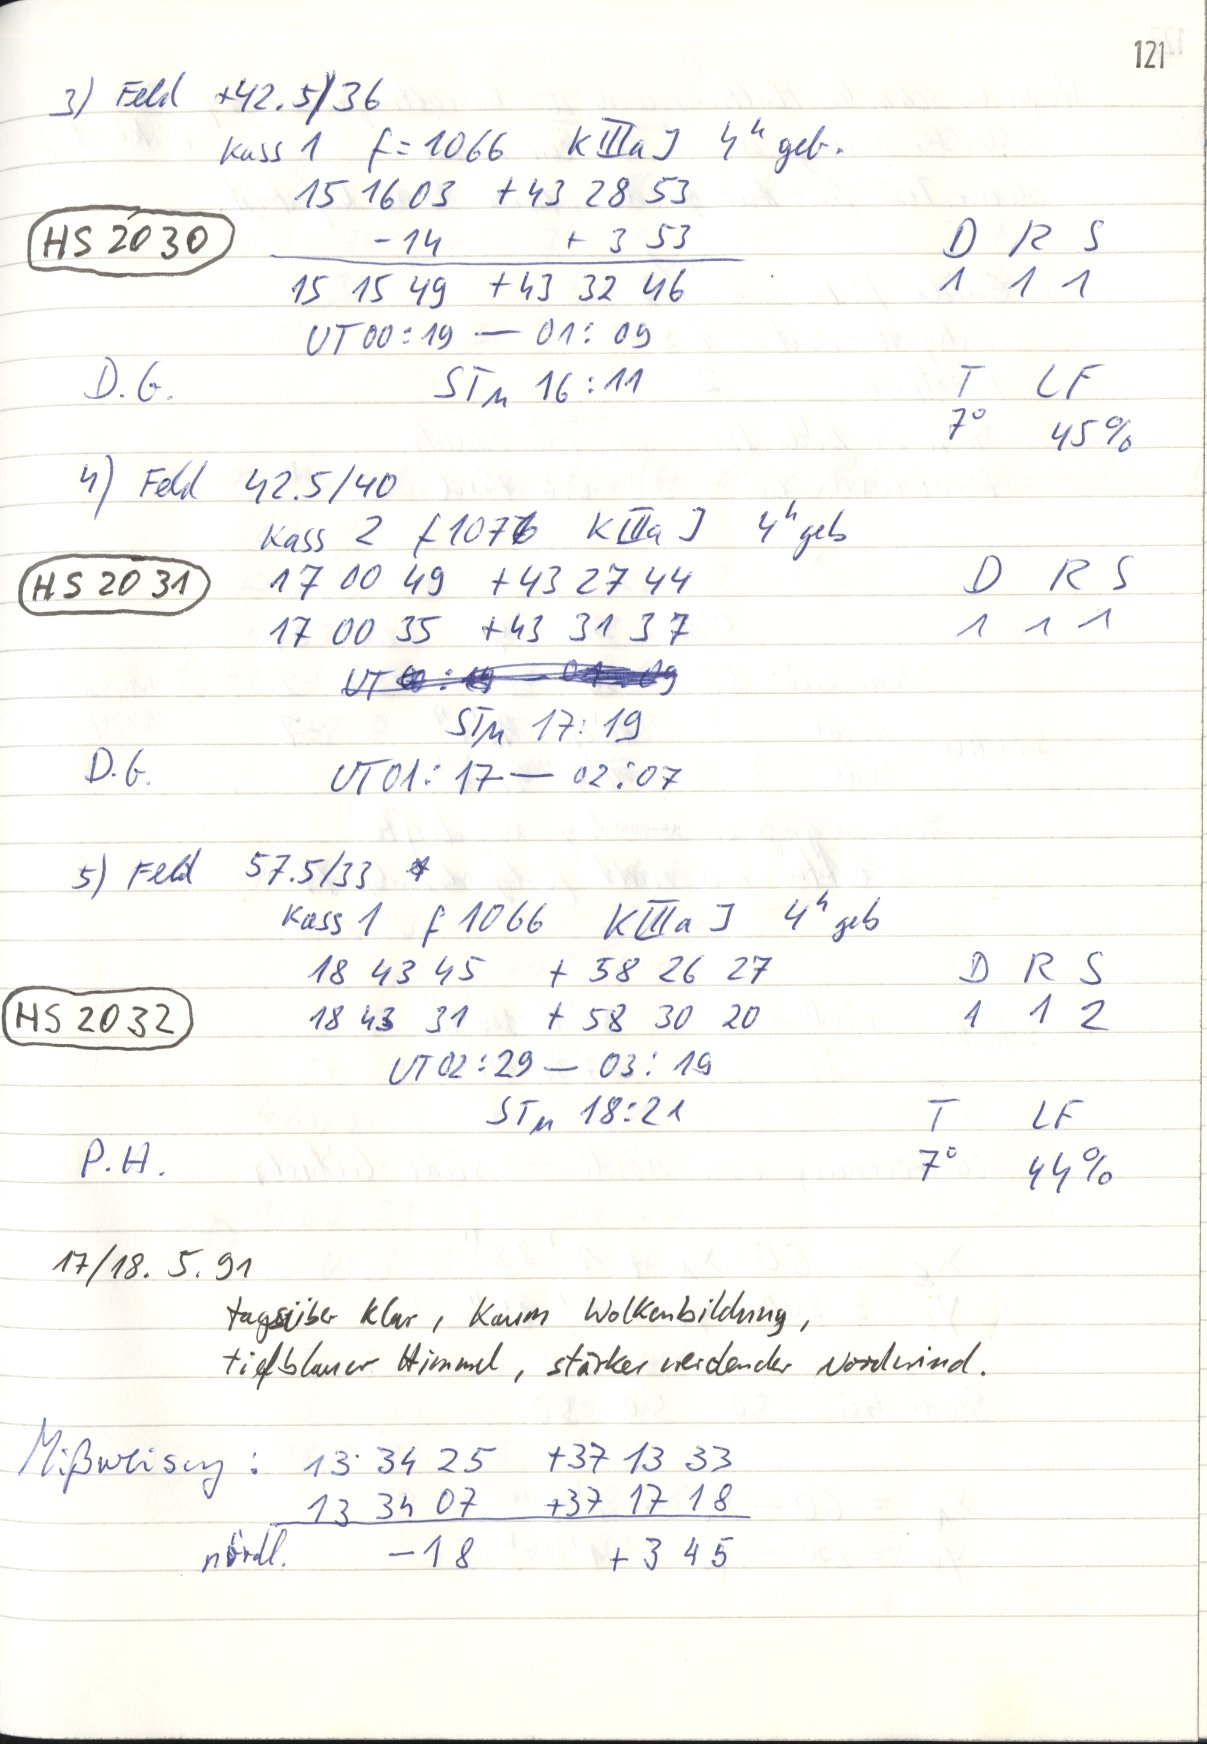 121
3) Feld +42.5/36
Kass 1 f=1066 KIIIaJ 4h geb.
15 16 03 +43 28 53
HS 2030 -14 + 3 53 D R S
15 15 49 +43 32 46 1 1 1
UT 00:19 — 01:09
D.G. STM 16:11 T LF
7° 45%
4) Feld 42.5/40
Kass 2 f 1076 KIIIaJ 4h geb
HS 2031 17 00 49 +43 27 44 D R S
17 00 35 +43 31 37 1 1 1
UT 00:19 — 01:09
STM 17:19
D.G. UT 01:17 — 02:07
5) Feld 57.5/33 *
Kass 1 f 1066 KIIIaJ 4h geb
18 43 45 + 58 26 27 D R S
HS 2032 18 43 31 + 58 30 20 1 1 2
UT 02:29 — 03:19
STM 18:21 T LF
P.H. 7° 44%
17/18. 5. 91
tagsüber klar, kaum Wolkenbildung,
tiefblauer Himmel, stärker werdender Nordwind.
Mißweisung: 13 34 25 +37 13 33
13 34 07 +37 17 18
nördl. -18 + 3 45